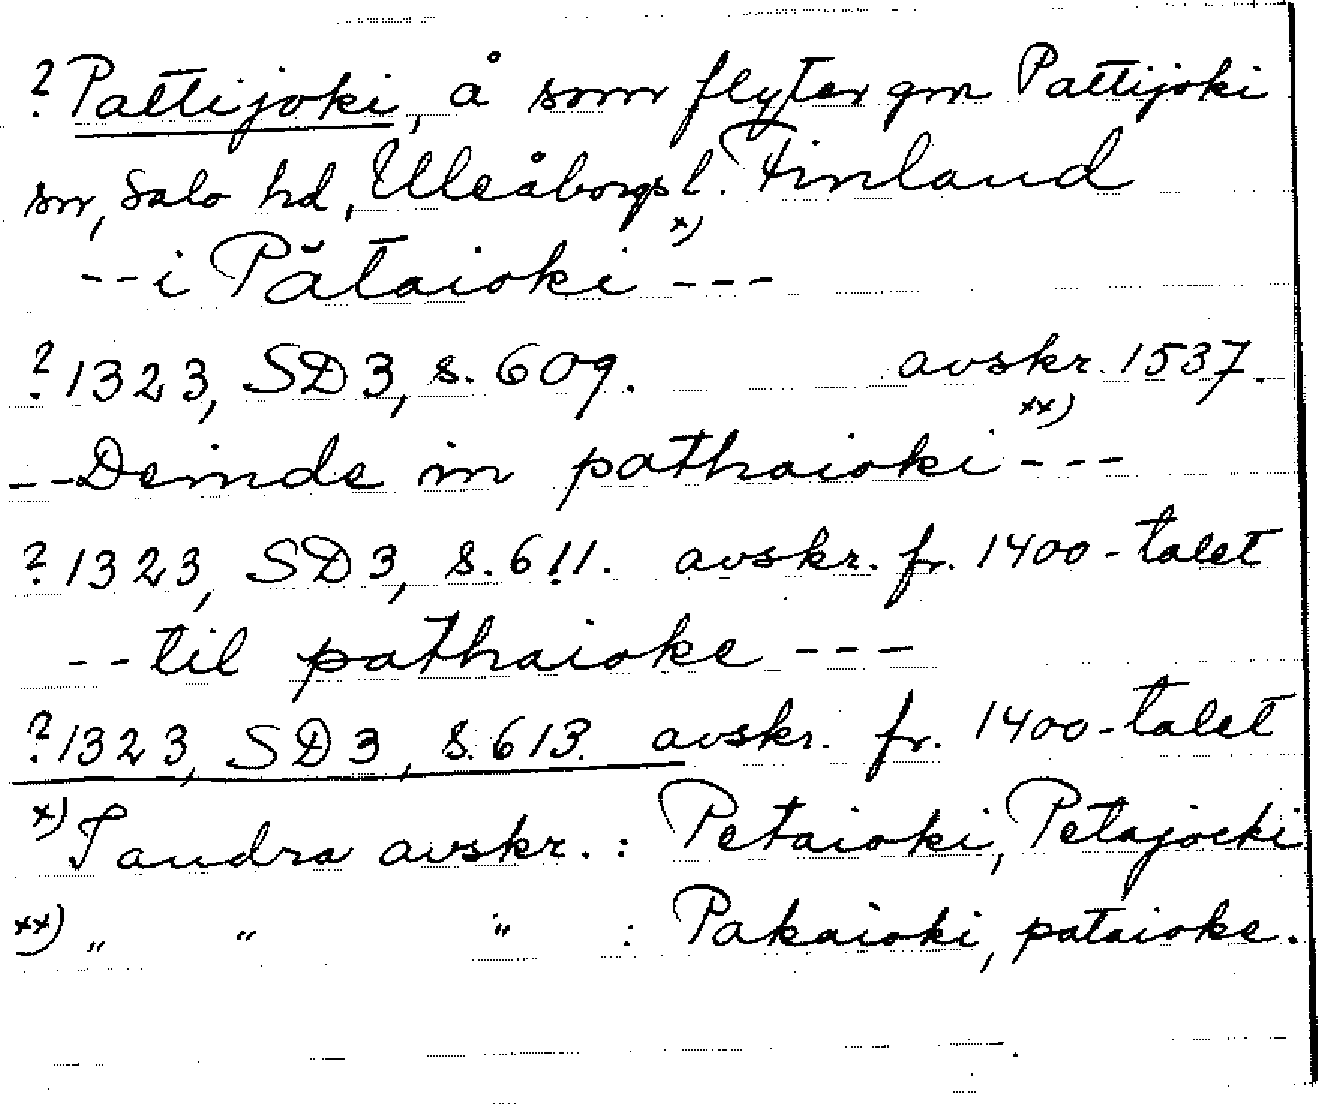 ? Pattijoki, å som flyter gm Pattijoki
sn, Salo hd, Uleåborgs l. Finland
--i Pătaioki x) ---
? 1323, SD 3, s. 609. avskr. 1537.
--Deinde in pathaioki xx) ---
? 1323, SD 3, s. 611. avskr. fr. 1400-talet
--til pathaioke ---
? 1323, SD 3, s. 613. avskr. fr. 1400-talet
x) I andra avskr. : Petaioki, Petajocki
xx) " " " : Pakaioki, pataioke.